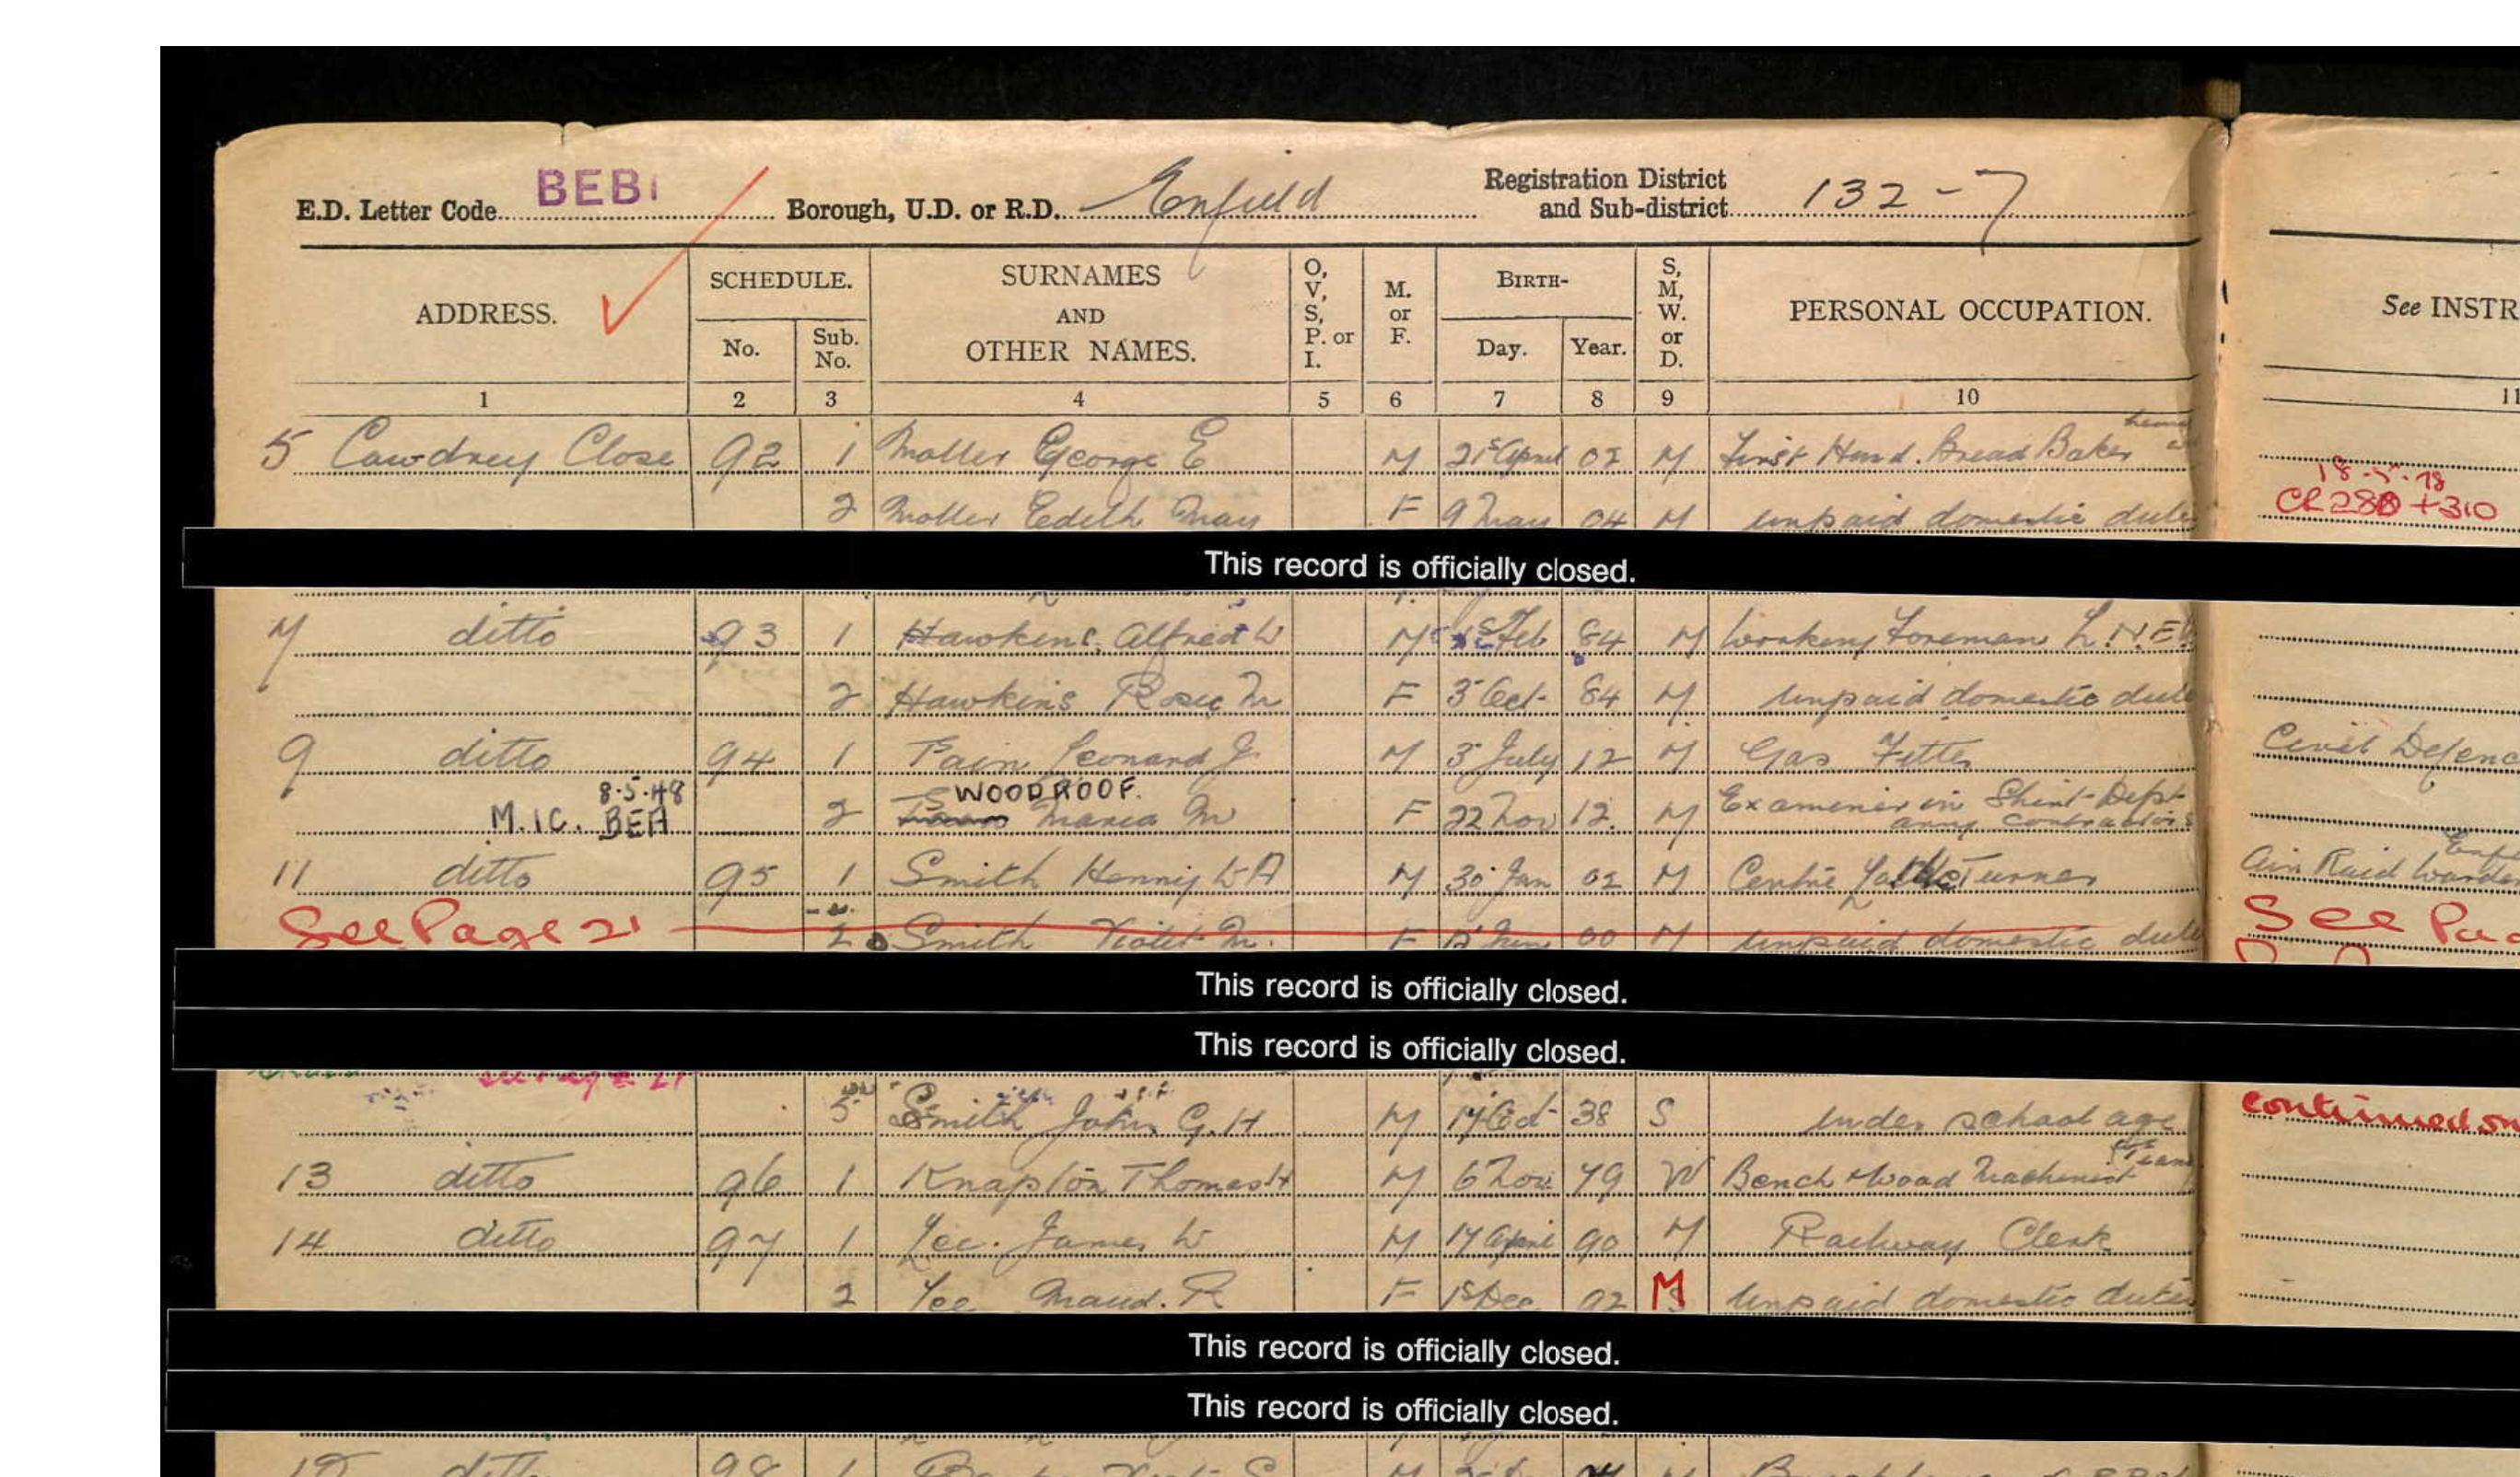 E.D. Letter Code BEB1 Borough, U.D. or R.D. Enfield Registration District and Sub-district 132-7
ADDRESS. SCHEDULE. No. Sub. No. SURNAMES AND OTHER NAMES. O, V, S, P. or I. M. or F. BIRTH- Day. Year. S, M, W. or D. PERSONAL OCCUPATION. See INSTR
1 2 3 4 5 6 7 8 9 10 11
5 Cawdrey Close 92 1 Moller George E M 21st April 02 M First Hand. Bread Baker
18-5-78
2 Moller Edith May F 9 May 04 M unpaid domestic dutie CR280+310
This record is officially closed.
7 ditto 93 1 Hawkins Alfred W M Feb 84 M Working Foreman L.N.E.
2 Hawkins Rose M F 3 Oct 84 M unpaid domestic dutie
9 ditto 94 1 Pain Leonard J. M 3 July 12 M Gas Fitter Civil Defenc
8.5.48 WOODROOF.
M.IC. BEA 2 Maria M F 22 Nov 12. M Examiner in Shirt-Dept- army contractors
11 ditto 95 1 Smith Henry W A M 30 Jan 02 M Centre Lathe Turner Air Raid Warden
See Page 21 2 Smith Violet M. F Jun 00 M unpaid domestic dutie See Pa
This record is officially closed.
This record is officially closed.
5 Smith John G. H M 17 Oct 38 S under school age continued on
13 ditto 96 1 Knapton Thomas H M 6 Nov 79 W Bench Wood Machinist
14 ditto 97 1 Lee. James W M 17 April 90 M Railway Clerk
2 Lee Maud. R F 1st Dec 92 M unpaid domestic dutie
This record is officially closed.
This record is officially closed.
ditto 98 1